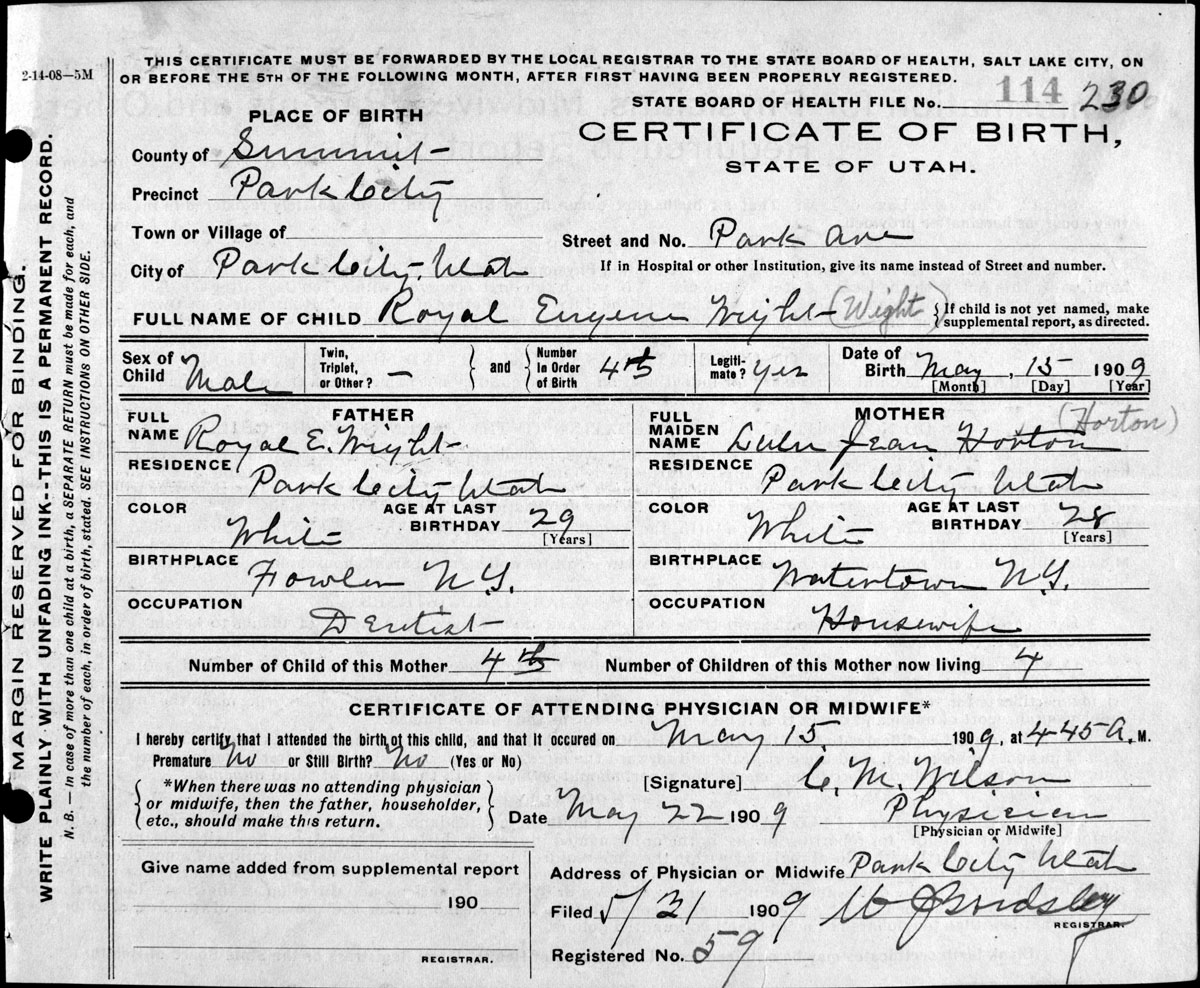 2-14-08—5M
THIS CERTIFICATE MUST BE FORWARDED BY THE LOCAL REGISTRAR TO THE STATE BOARD OF HEALTH, SALT LAKE CITY, ON
OR BEFORE THE 5TH OF THE FOLLOWING MONTH, AFTER FIRST HAVING BEEN PROPERLY REGISTERED.
STATE BOARD OF HEALTH FILE No. 114 230
PLACE OF BIRTH
CERTIFICATE OF BIRTH,
STATE OF UTAH.
County of Summit
Precinct Park City
Town or Village of
Street and No. Park Ave
City of Park City, Utah
If in Hospital or other Institution, give its name instead of Street and number.
FULL NAME OF CHILD Royal Eugene Wright (Wight) {If child is not yet named, make
supplemental report, as directed.
Sex of Child Male
Twin, Triplet, or Other? — } and { Number In Order of Birth 4th
Legiti-mate? Yes
Date of Birth May, 15 1909
[Month] [Day] [Year]
FATHER
FULL NAME Royal E. Wright
RESIDENCE
Park City Utah
COLOR White
AGE AT LAST BIRTHDAY 29
[Years]
BIRTHPLACE
Fowler N.Y.
OCCUPATION
Dentist
MOTHER
FULL MAIDEN NAME Lulu Jean Horton (Horton)
RESIDENCE
Park City Utah
COLOR White
AGE AT LAST BIRTHDAY 28
[Years]
BIRTHPLACE
Watertown N.Y.
OCCUPATION
Housewife
Number of Child of this Mother 4th Number of Children of this Mother now living 4
CERTIFICATE OF ATTENDING PHYSICIAN OR MIDWIFE*
I hereby certify that I attended the birth of this child, and that it occured on May 15, 1909, at 445 A. M.
Premature No or Still Birth? No (Yes or No)
{*When there was no attending physician
or midwife, then the father, householder,
etc., should make this return.}
[Signature] C. M. Wilson
Date May 22 1909 Physician
[Physician or Midwife]
Give name added from supplemental report
190
REGISTRAR.
Address of Physician or Midwife Park City Utah
Filed 5/31 1909
REGISTRAR.
Registered No. 59
MARGIN RESERVED FOR BINDING.
WRITE PLAINLY WITH UNFADING INK--THIS IS A PERMANENT RECORD.
N. B.—In case of more than one child at a birth, a SEPARATE RETURN must be made for each, and
the number of each, in order of birth, stated. SEE INSTRUCTIONS ON OTHER SIDE.